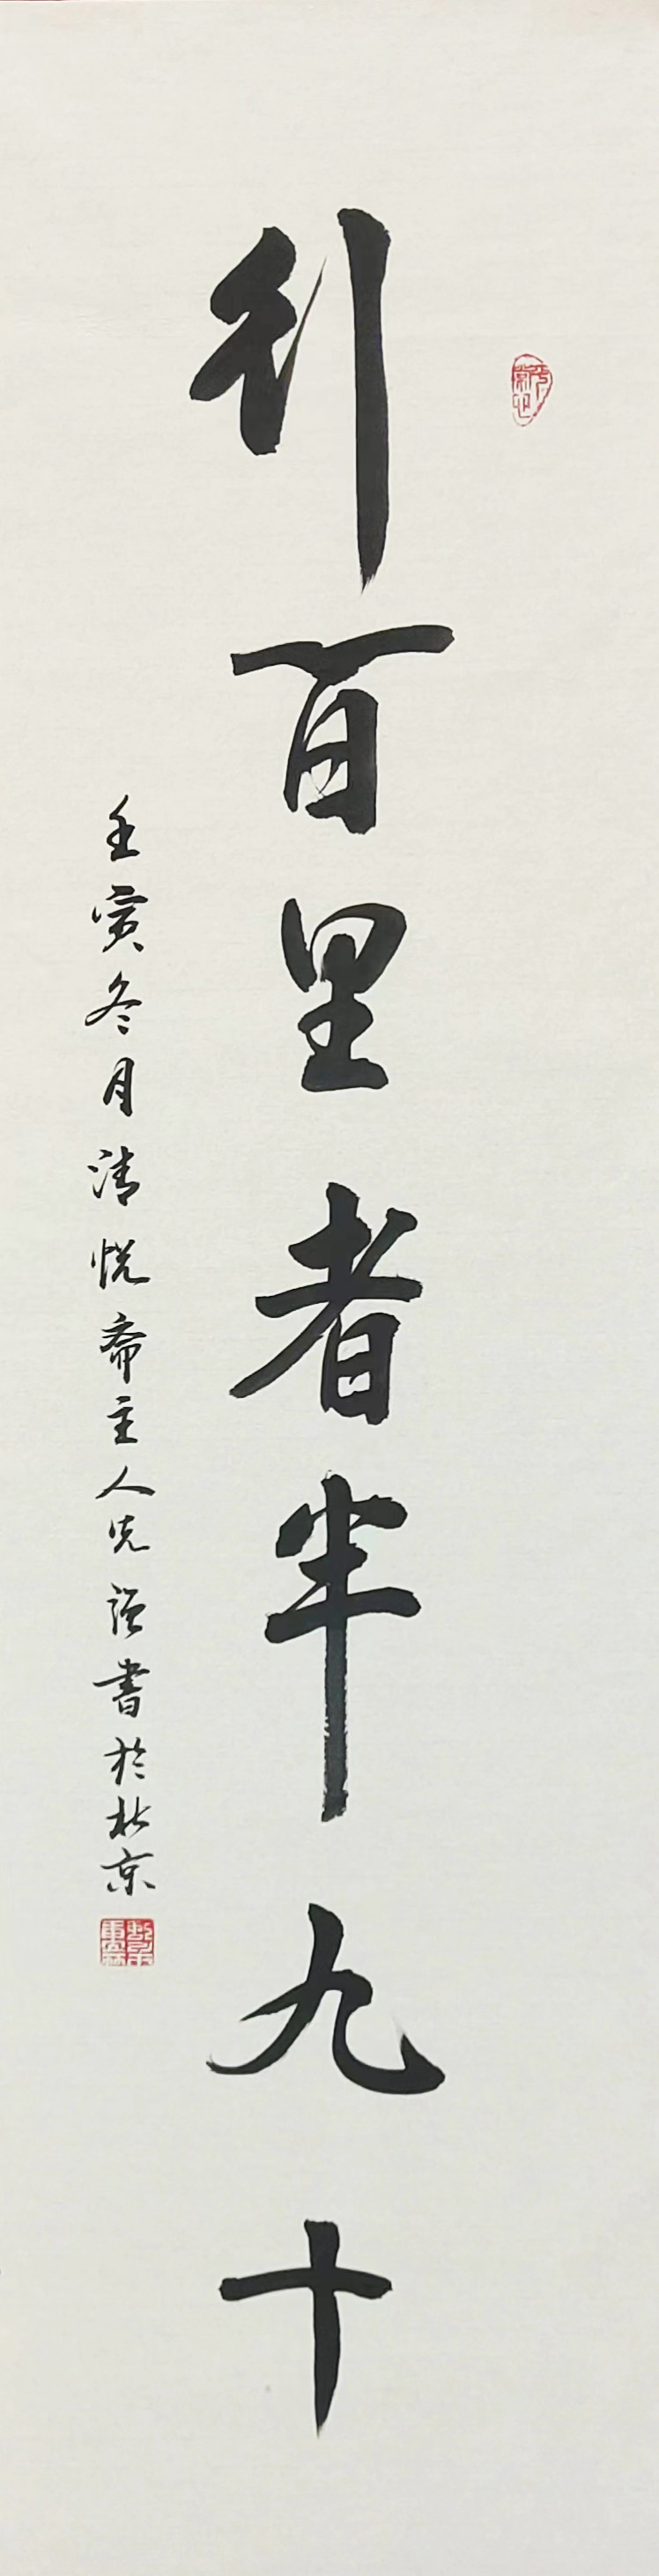 行百里者半九十
壬寅冬月清悦斋主人先强書於北京